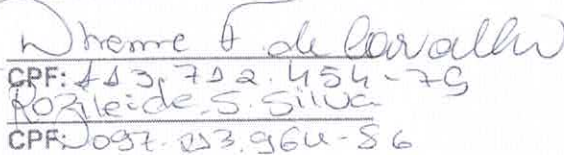 F. de Carvalho
CPF: 113.712.454-79
Rozileide. S. Silva
CPF: 097.213.964-86